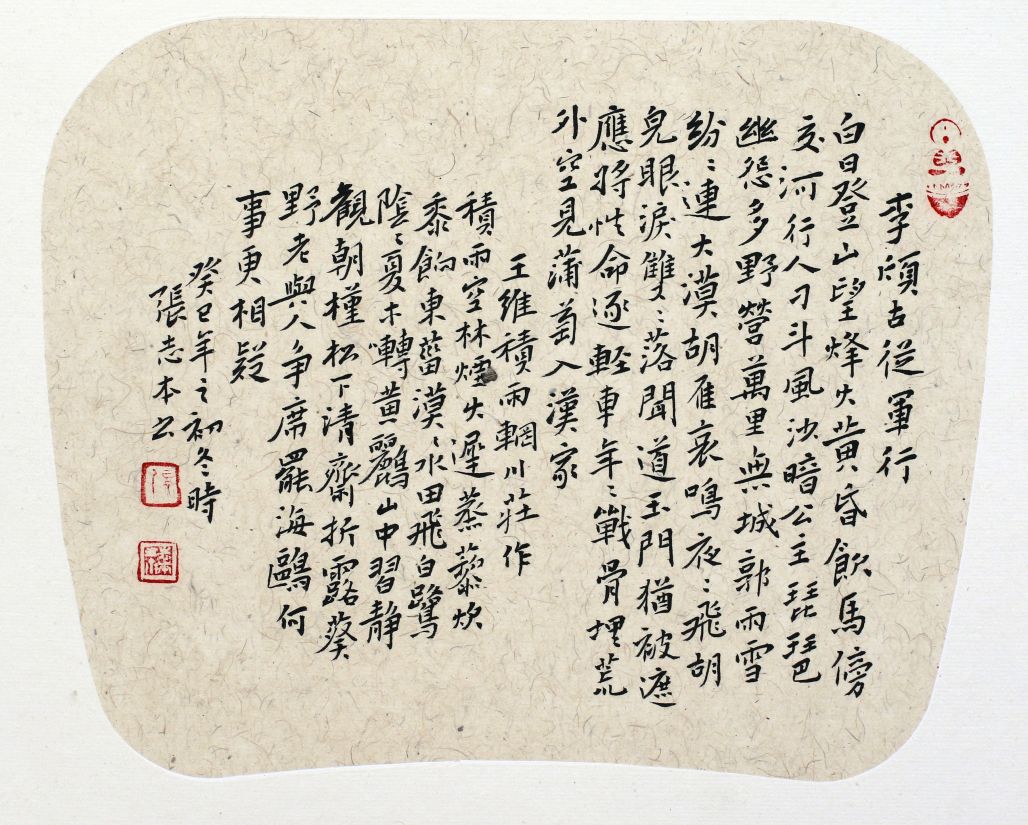 李頎古從軍行
白日登山望烽火黄昏飲馬傍
交河行人刁斗風沙暗公主琵琶
幽怨多野營萬里無城郭雨雪
紛〻連大漠胡雁哀鳴夜〻飛胡
兒眼淚雙〻落聞道玉門猶被遮
應將性命逐輕車年〻戰骨埋荒
外空見蒲萄入漢家
王維積雨輞川莊作
積雨空林煙火遲蒸藜炊
黍餉東菑漠〻水田飛白鷺
陰〻夏木囀黄鸝山中習静
觀朝槿松下清齋折露葵
野老與人争席罷海鷗何
事更相疑
癸巳年之初冬時
張志本书